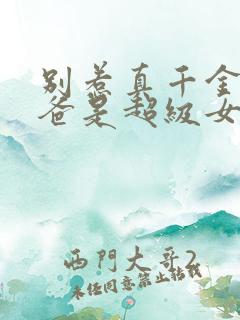 别惹真千金
爸是超级女
西門大哥2
未经同意禁止转载